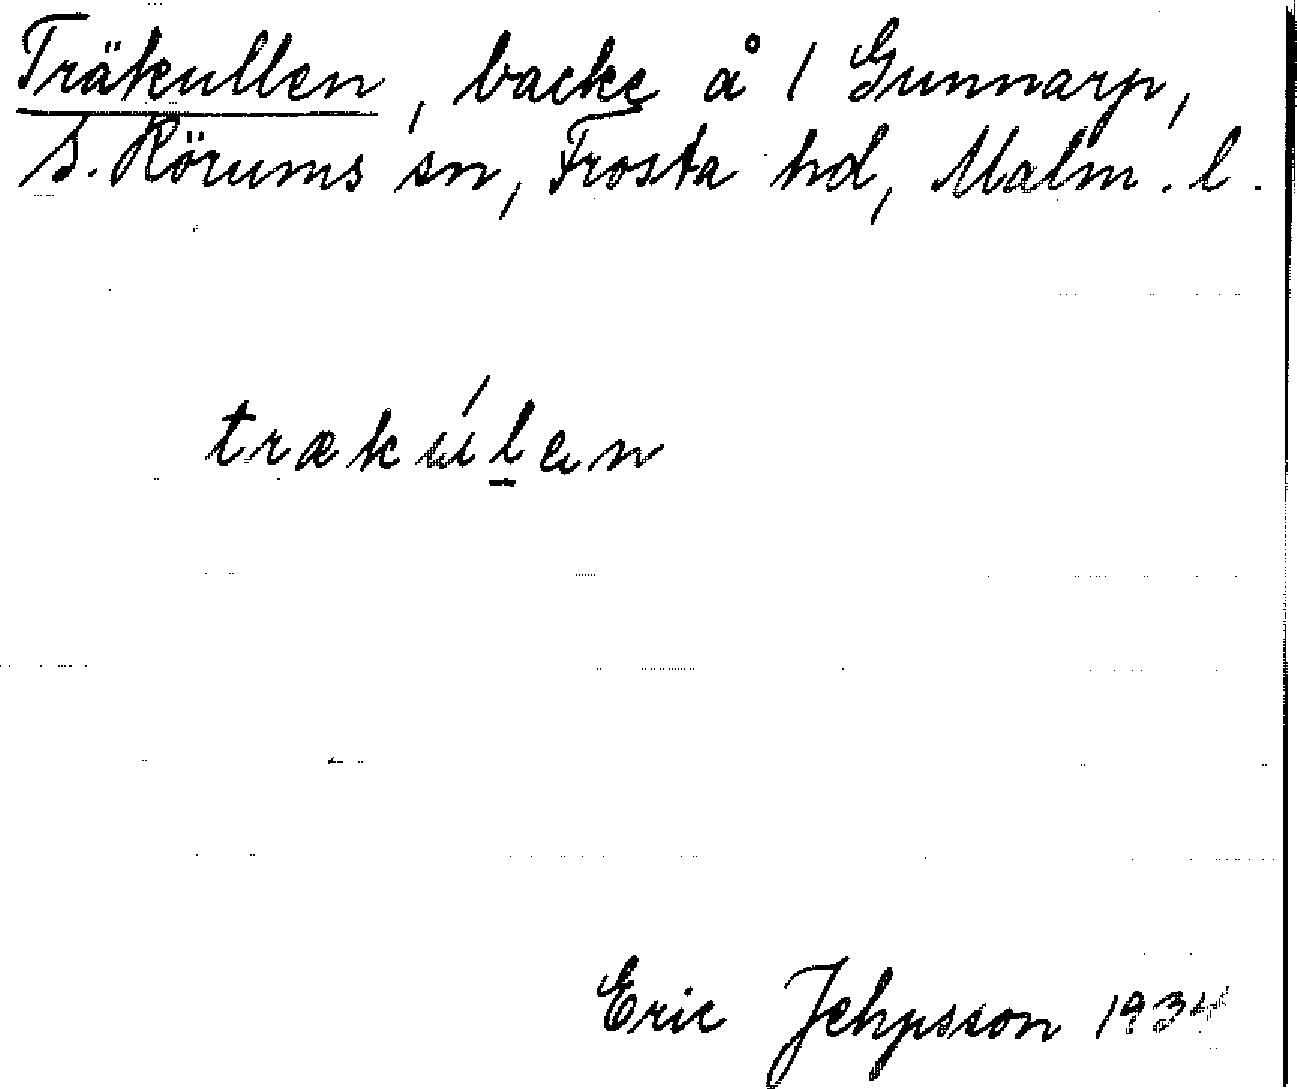 Träkullen, backe å 1 Gunnarp,
S. Rörums sn, Frosta hd, Malm. l.
trækúl̠en
Eric Jehpsson 1934